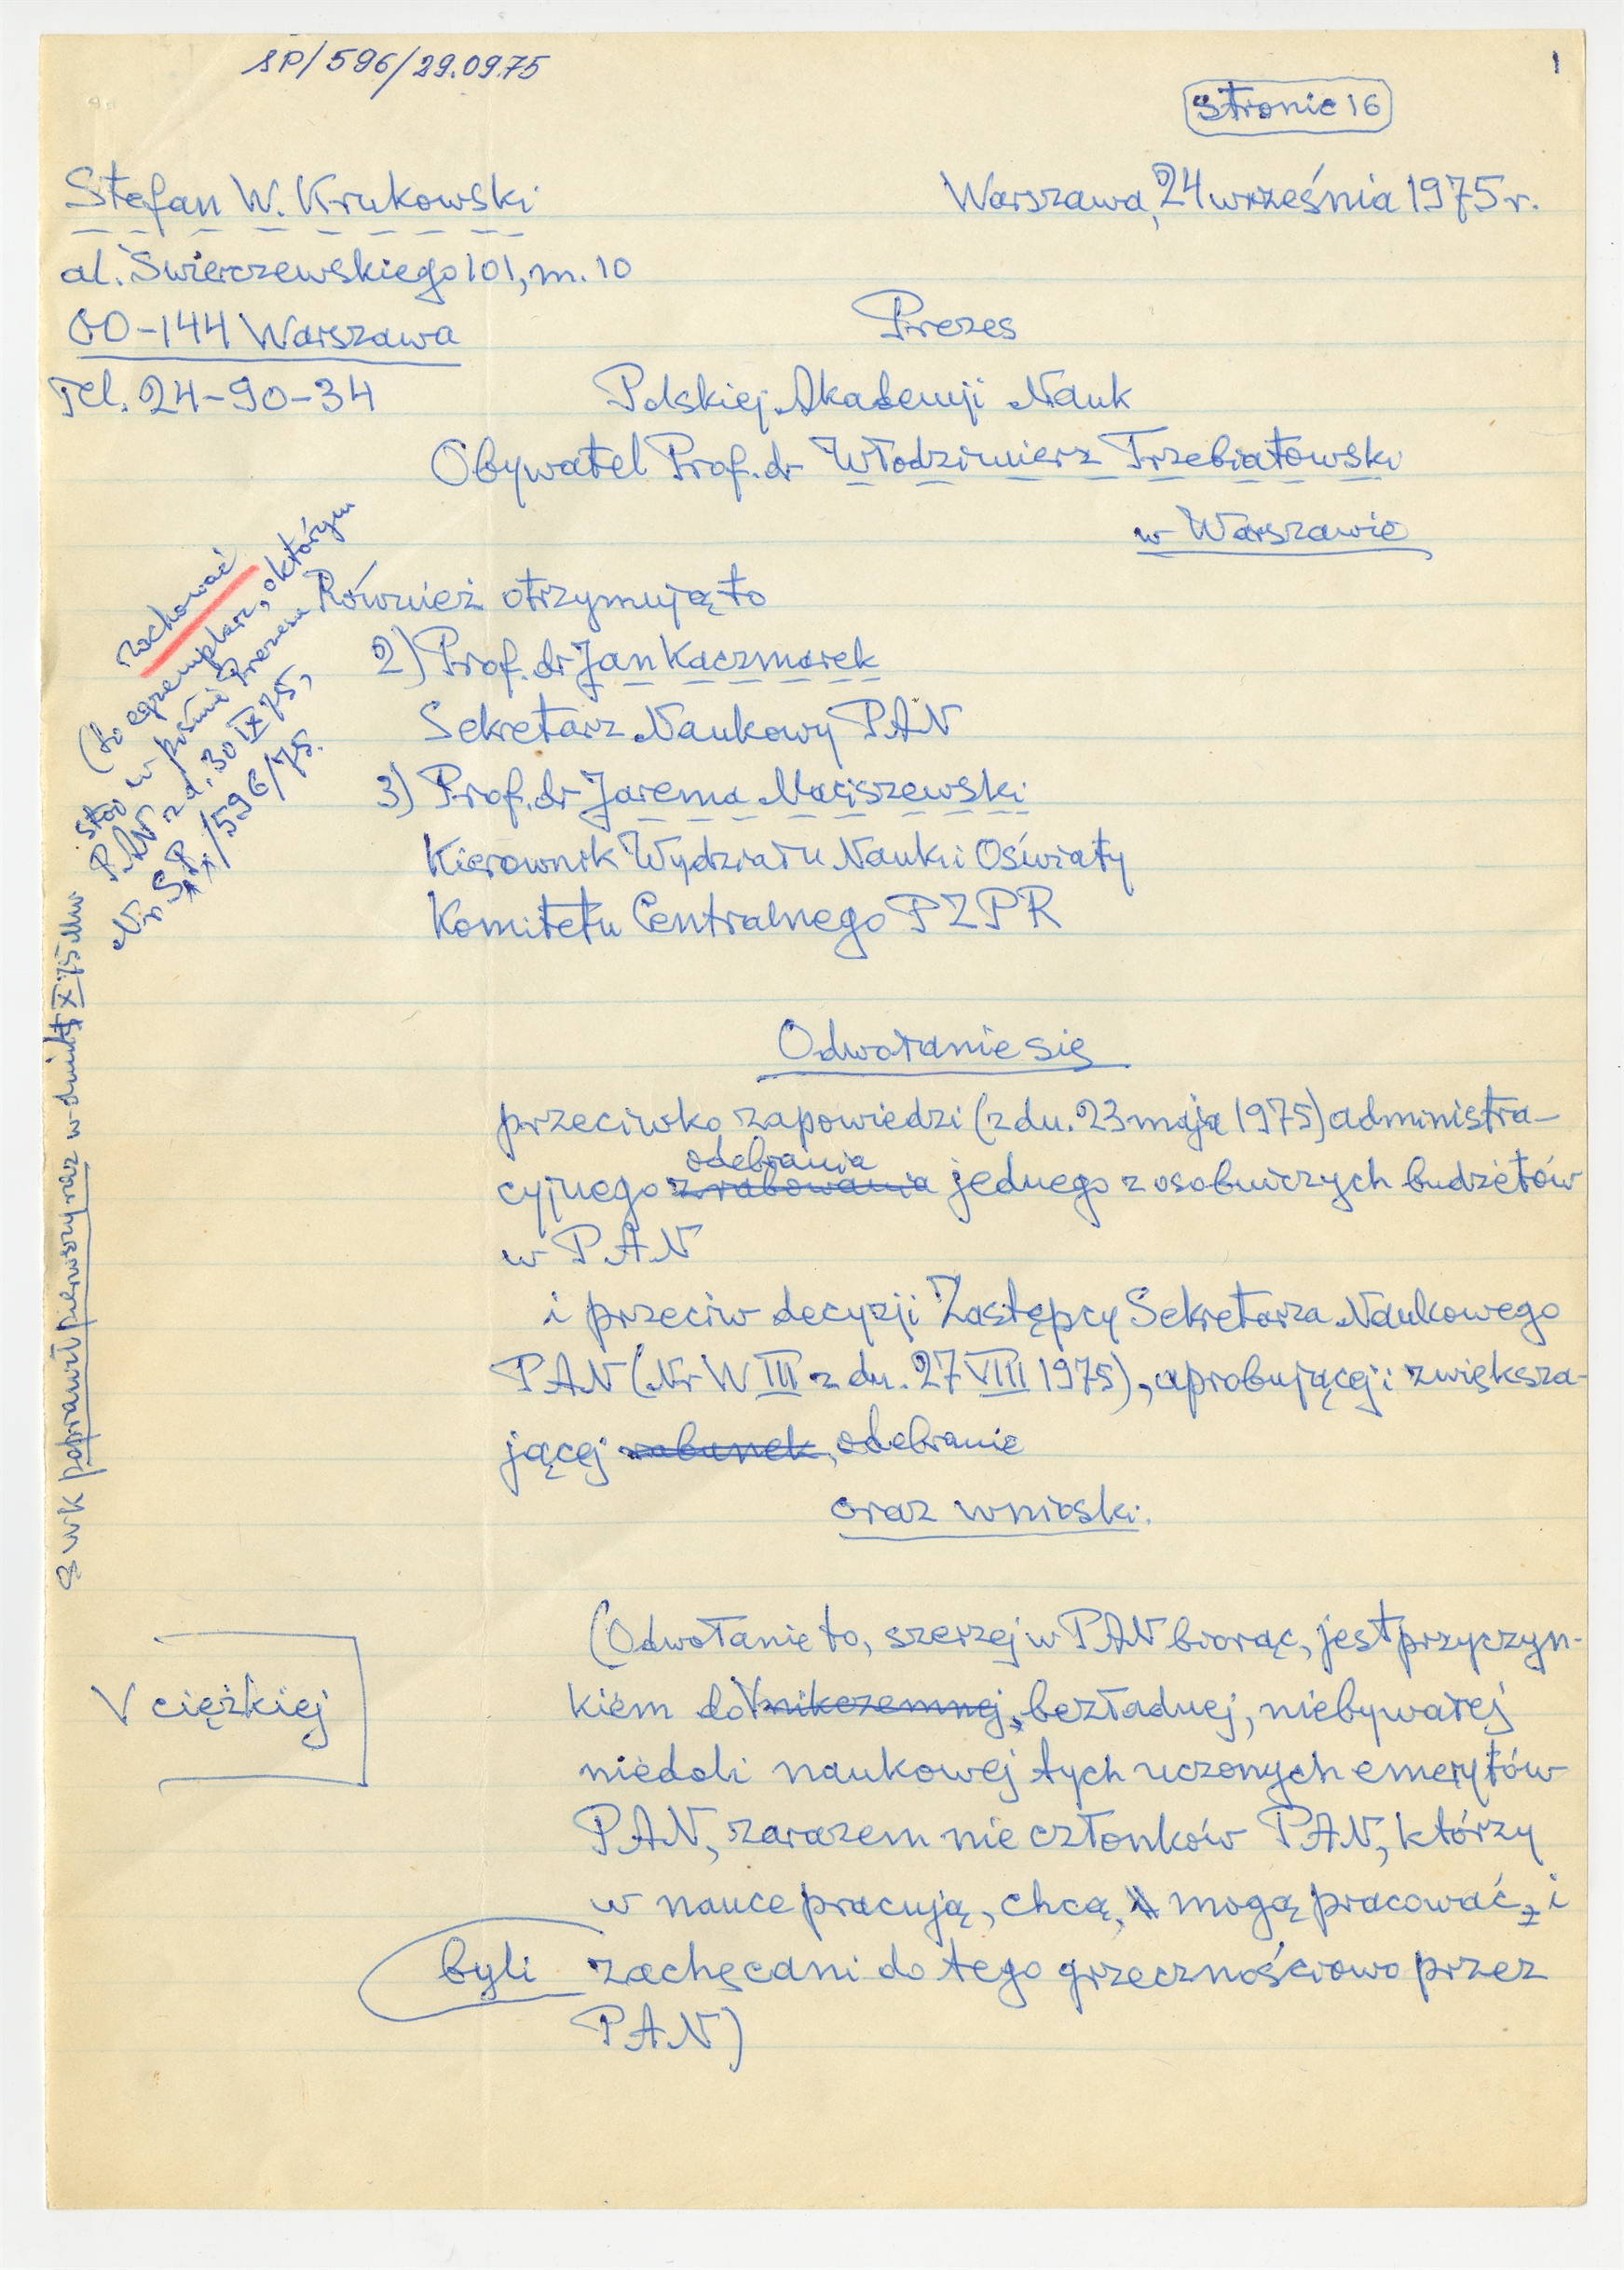 SP/596/29.09.75
1
Stronic 16
Stefan W. Krukowski
Warszawa, 24 września 1975 r.
al. Świerczewskiego 101, m. 10
00-144 Warszawa
Tel. 24-90-34
Prezes
Polskiej Akademji Nauk
Obywatel Prof. dr Włodzimierz Trzebiatowski
w Warszawie
zachować
(to egzemplarz, o którym
stoi w piśmie Prezesa
PAN z d. 30 IX 75,
Nr. SP/596/75.
Również otrzymują to
2) Prof. dr Jan Kaczmarek
Sekretarz Naukowy PAN
3) Prof. dr Jarema Maciszewski
Kierownik Wydziału Nauki i Oświaty
Komitetu Centralnego PZPR
Odwołanie się
przeciwko zapowiedzi (z du. 23 maja 1975) administra-
odebrania
cyjnego zrabowania jednego z osobniczych budżetów
w PAN
i przeciw decyzji Zastępcy Sekretarza Naukowego
PAN (Nr W III z du. 27 VIII 1975), aprobującej i zwiększa-
jącej rabunek, odebranie
oraz wnioski.
S W K poprawił pierwszy raz w dniu X 75
(Odwołanie to, szerzej w PAN biorąc, jest przyczyn-
V ciężkiej
kiem do V nikczemnej, bezładnej, niebywałej
niedoli naukowej tych uczonych emerytów
PAN, zarazem nie członków PAN, którzy
w nauce pracują, chcą, mogą pracować, i
byli zachęcani do tego grzecznościowo przez
PAN)